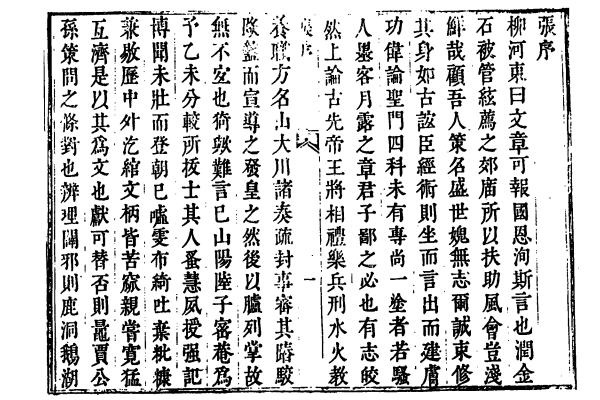 張序
柳河東曰文章可報國恩洵斯言也潤金
石被管絃薦之郊廟所以扶助風會豈淺
鮮哉顧吾人策名盛世媿無志爾誠束修
其身如古誼臣經術則坐而言出而建膚
功偉論聖門四科未有專尚一塗者若騷
人墨客月露之章君子鄙之必也有志皎
然上論古先帝王將相禮樂兵刑水火教
張序 一
養職方名山大川諸奏疏封事審其賾駮
而宣導之發皇之然後以臚列掌故
無不宜也猗歟難言已山陽陸子密菴爲
予乙未分較所拔士其人蚤慧夙授強記
博聞未壯而登朝已噓雯布綺吐棄秕糠
兼敭歷中外迄綰文柄皆苦親嘗寬猛
互濟是以其爲文也獻可替否則鼂賈公
孫策問之條對也辨理闢邪則鹿洞鵝湖